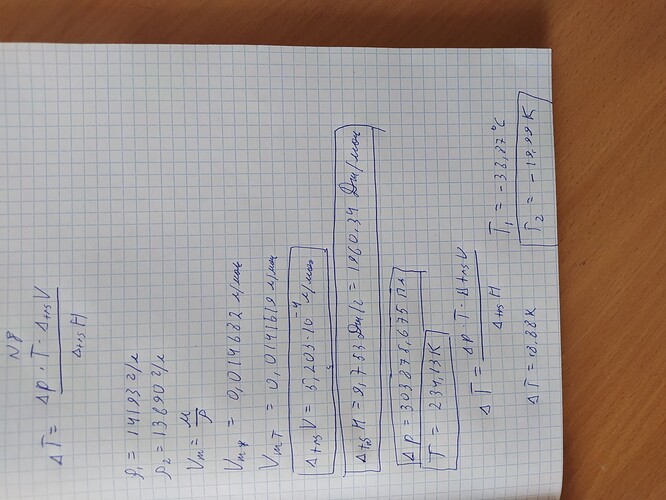 N8
ΔT = Δp · T · Δtrs V / Δtrs H
ρ1 = 14193 г/л
ρ2 = 13690 г/л
Vm = M/ρ
Vm ж = 0,014682 л/моль
Vm т = 0,0141619 л/моль
Δtrs V = 5,203·10⁻⁴ л/моль
Δtrs H = 9,733 Дж/г = 1960,34 Дж/моль
Δp = 303 075,675 Па
T = 234,13 K
ΔT = Δp · T · Δtrs V / Δtrs H
T1 = -38,87 °C
ΔT = 18,88 K
T2 = -19,99 K